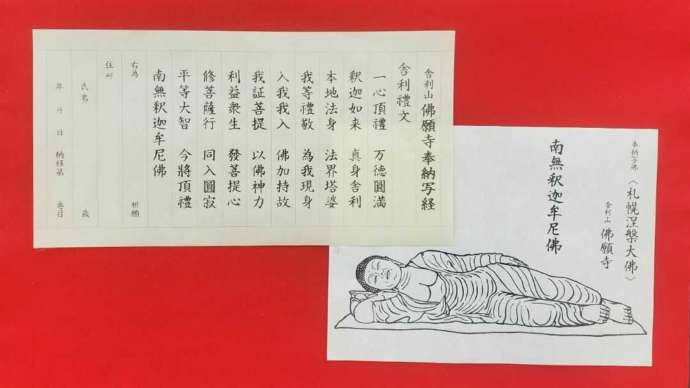 舎利山 佛願寺奉納写経
舎利禮文
一心頂禮 万德圓滿
釈迦如来 真身舎利
本地法身 法界塔婆
我等禮敬 為我現身
入我我入 佛加持故
我証菩提 以佛神力
利益衆生 發菩提心
修菩薩行 同入圓寂
平等大智 今將頂禮
南無釈迦牟尼佛
右為 祈願
住所
氏名 歳
年 月 日 納経第 巻目
奉納写佛〈札幌涅槃大佛〉
舎利山 佛願寺
南無釈迦牟尼佛